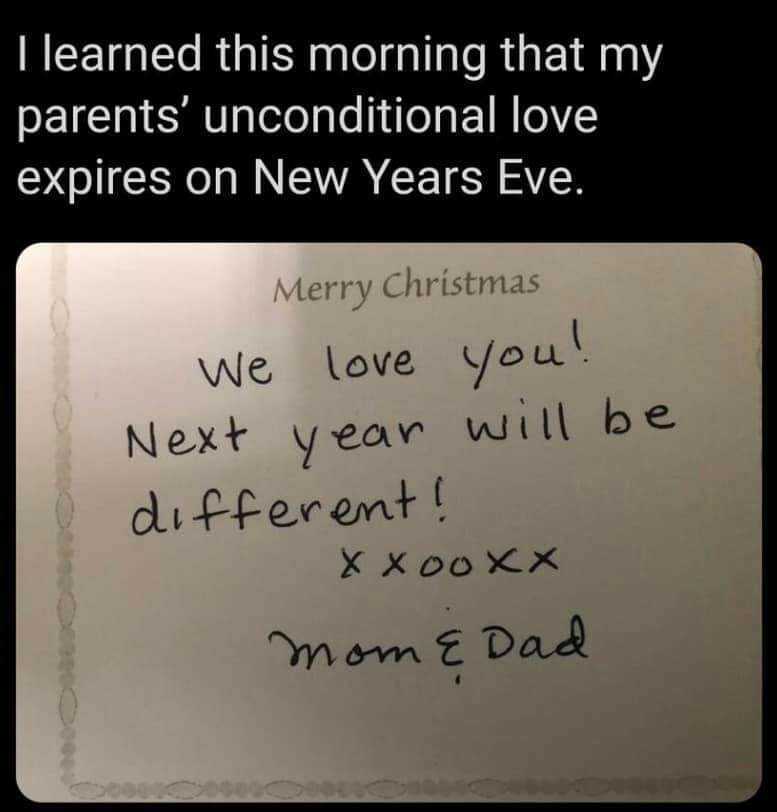 I learned this morning that my
parents’ unconditional love
expires on New Years Eve.
Merry Christmas
We love you!
Next year will be
different!
x x o o x x
Mom & Dad